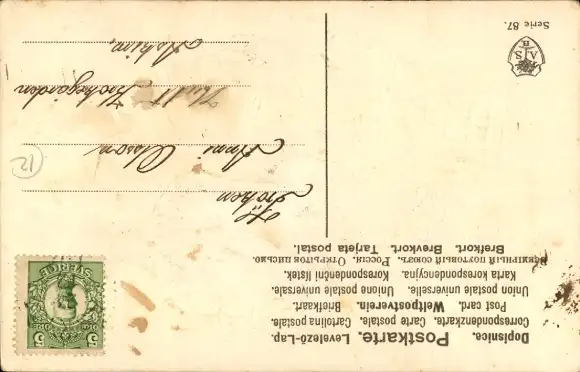 Dopisnice. Postkarte. Levelező-Lap.
Correspondenzkarte. Carte postale. Cartolina postale.
Post card. Weltpostverein. Briefkaart.
Union postale universelle. Unione postale universale.
Karta korespondencyjna. Korespondenční lístek.
Всемірный почтовый союзъ. Россія. Открытое письмо.
Brefkort. Brevkort. Tarjeta postal.
Fröken
Anni Olsson
Askim,
Serie 87.
AJS
12
5 5
SVERIGE